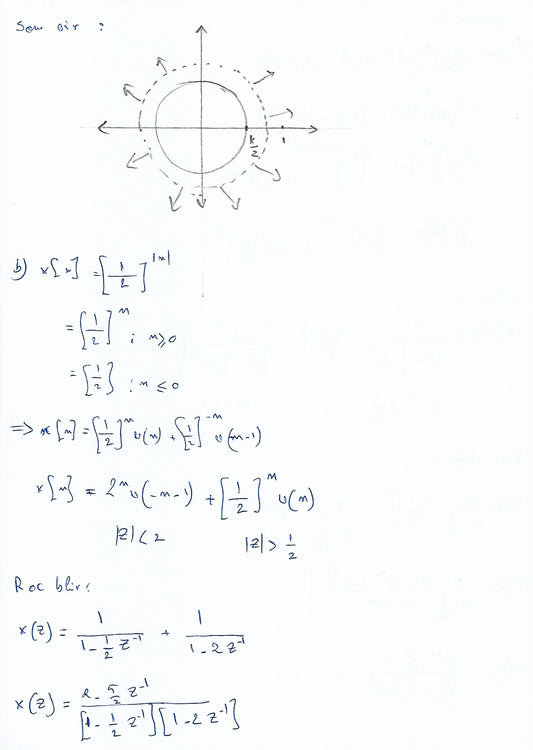 Som är :
1/2
1
b) x[n] = [1/2]^|n|
= [1/2]^n ; n≥0
= [1/2] ; n≤0
=> x[n] = [1/2]^n u(n) + [1/2]^-n u(-n-1)
x[n] = 2^n u(-n-1) + [1/2]^n u(n)
|z|<2 |z|>1/2
Roc blir:
x(z) = 1/(1-1/2 z^-1) + 1/(1-2z^-1)
x(z) = (2-5/2 z^-1)/([1-1/2 z^-1][1-2z^-1])